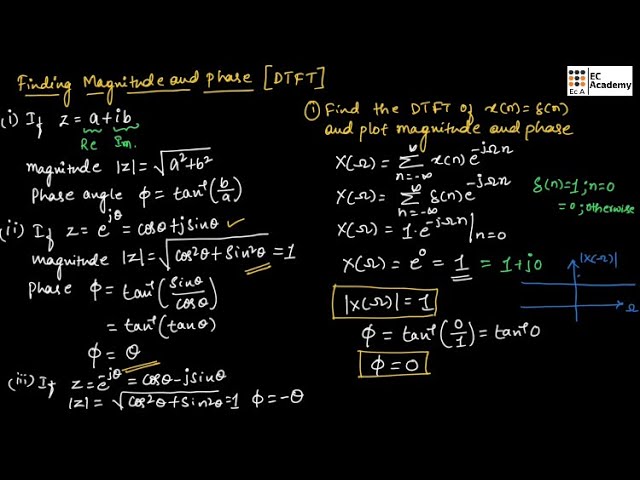 Finding Magnitude and phase [DTFT]
(i) If z = a+ib
Re Im.
magnitude |z| = √(a²+b²)
Phase angle ϕ = tan⁻¹(b/a)
(ii) If z = e^{jθ} = cosθ+jsinθ ✓
magnitude |z| = √(cos²θ+sin²θ) = 1
Phase ϕ = tan⁻¹(sinθ/cosθ)
= tan⁻¹(tanθ)
ϕ = θ
(iii) If z = e^{-jθ} = cosθ-jsinθ
|z| = √(cos²θ+sin²θ) = 1 ϕ = -θ
EC
Academy
Ec.A
① Find the DTFT of x(n) = δ(n)
and plot magnitude and phase
X(Ω) = ∑_{n=-∞}^{∞} x(n) e^{-jΩn}
X(Ω) = ∑_{n=-∞}^{∞} δ(n) e^{-jΩn}
δ(n) = 1; n=0
= 0; otherwise
X(Ω) = 1·e^{-jΩn}|_{n=0}
X(Ω) = e⁰ = 1 = 1+j0
|X(Ω)| = 1
ϕ = tan⁻¹(0/1) = tan⁻¹0
ϕ = 0
|X(Ω)|
Ω